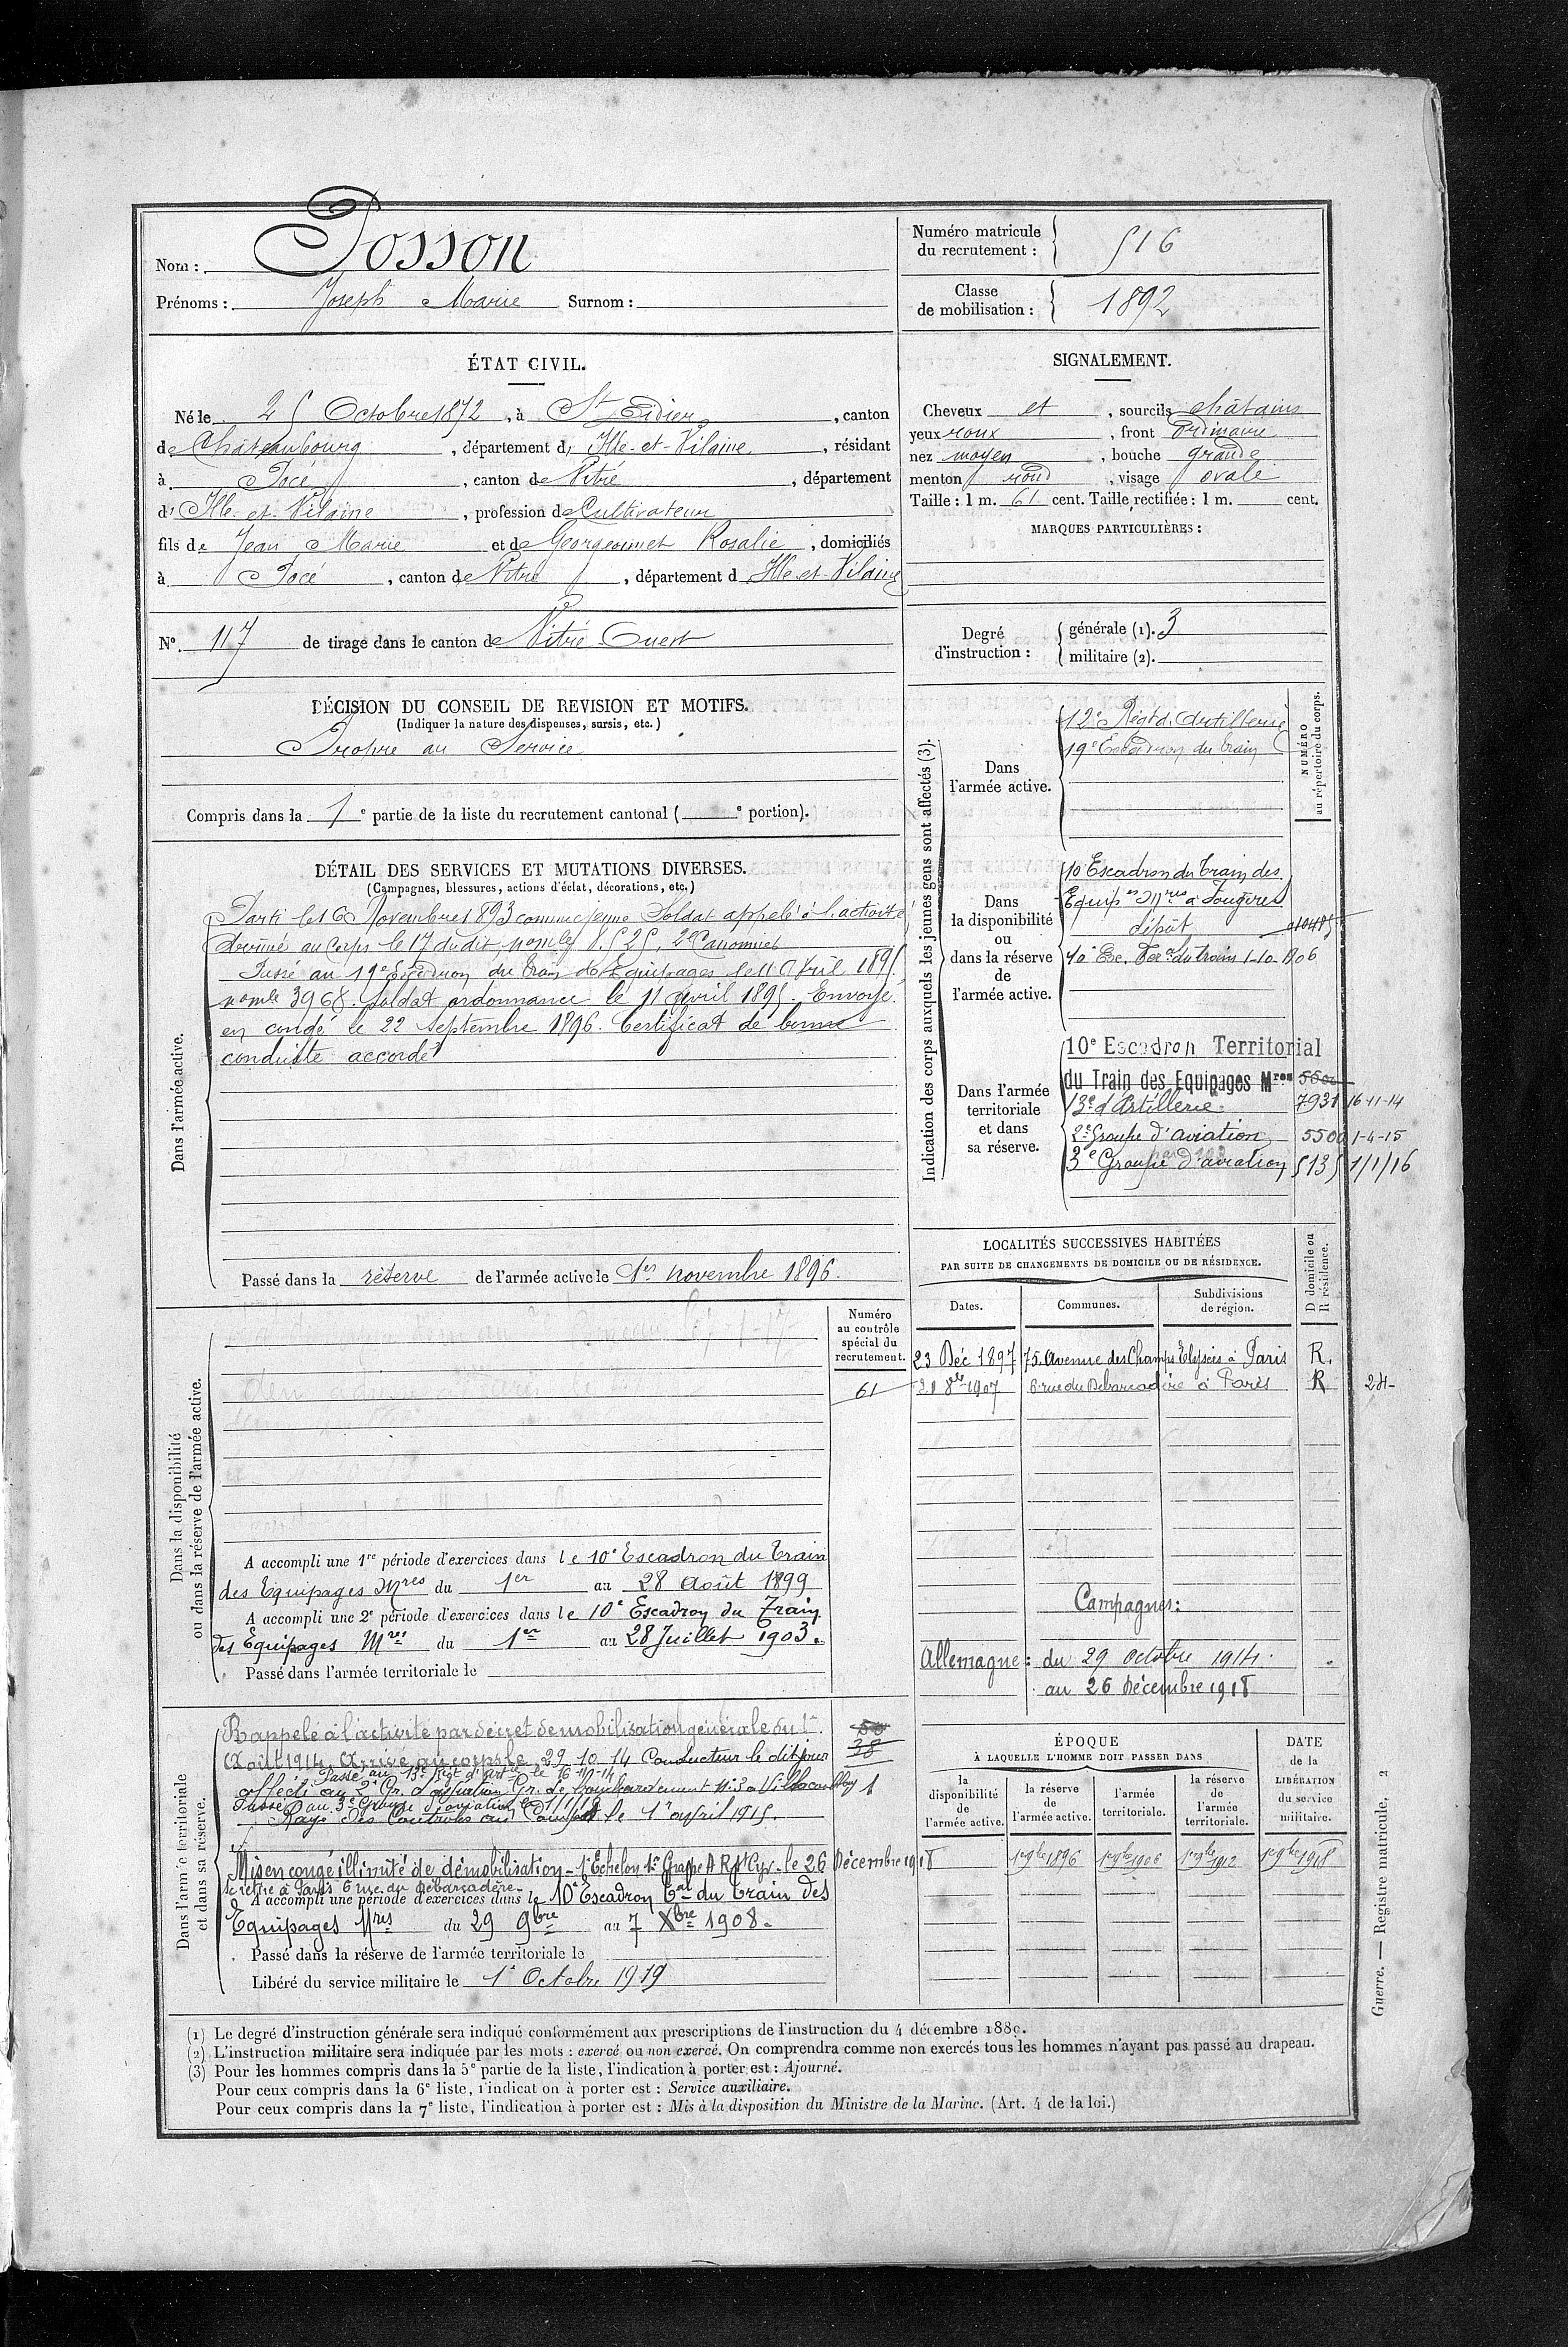 Nom : Posson
Prénoms : Joseph Marie Surnom :
Numéro matricule
du recrutement : 516
Classe
de mobilisation : 1892
ÉTAT CIVIL.
Né le 25 Octobre 1872, à St Didier, canton
de Châteaubourg, département d' Ille-et-Vilaine, résidant
à Pocé, canton de Vitré, département
d' Ille-et-Vilaine, profession de Cultivateur
fils de Jean Marie et de Georgeonnet Rosalie, domiciliés
à Pocé, canton de Vitré, département d Ille-et-Vilaine
N°. 117 de tirage dans le canton de Vitré Ouest
SIGNALEMENT.
Cheveux et, sourcils châtains
yeux roux, front ordinaire
nez moyen, bouche grande
menton rond, visage ovale
Taille : 1 m. 61 cent. Taille rectifiée : 1 m. cent.
MARQUES PARTICULIÈRES :
Degré
d'instruction :
générale (1). 3
militaire (2).
DÉCISION DU CONSEIL DE REVISION ET MOTIFS.
(Indiquer la nature des dispenses, sursis, etc.)
Propre au Service
Compris dans la 1e partie de la liste du recrutement cantonal ( e portion).
DÉTAIL DES SERVICES ET MUTATIONS DIVERSES.
(Campagnes, blessures, actions d'éclat, décorations, etc.)
Dans l'armée active.
Parti le 16 Novembre 1893 comme jeune Soldat appelé à l'activité
Arrivé au Corps le 17 du dit, n° mle 8525, 2e Canonnier
Passé au 19e Escadron du train des Equipages le 11 Avril 1895
n° mle 3968. Soldat ordonnance le 11 avril 1895. Envoyé
en congé le 22 septembre 1896. Certificat de bonne
conduite accordé
Passé dans la réserve de l'armée active le 1er novembre 1896.
Indication des corps auxquels les jeunes gens sont affectés (3).
NUMÉRO
au répertoire du corps.
Dans
l'armée active.
12e Régt d'Artillerie
19e Escadron du train
Dans
la disponibilité
ou
dans la réserve
de
l'armée active.
10 Escadron du Train des
Equipes Mres à Fougères
dépôt
10e Es. du train 1-10-1906
Dans l'armée
territoriale
et dans
sa réserve.
10e Escadron Territorial
du Train des Equipages Mres
13e d'Artillerie 7931 16-11-14
2e Groupe d'aviation 5500 1-4-15
3e Groupe d'aviation 5135 1/1/16
LOCALITÉS SUCCESSIVES HABITÉES
PAR SUITE DE CHANGEMENTS DE DOMICILE OU DE RÉSIDENCE.
Dates.
Communes.
Subdivisions
de région.
D domicile ou
R résidence.
23 Déc 1897 75. Avenue des Champs Elysées à Paris R.
21 8bre 1907 6 rue du Débarcadère à Paris R 24-
Campagnes :
Allemagne : du 29 octobre 1914.
au 26 décembre 1918
Dans la disponibilité
ou dans la réserve de l'armée active.
Numéro
au contrôle
spécial du
recrutement.
61
A accompli une 1re période d'exercices dans le 10e Escadron du Train
des Equipages Mres du 1er au 28 Août 1899
A accompli une 2e période d'exercices dans le 10e Escadron du Train
des Equipages Mres du 1er au 28 Juillet 1903.
Passé dans l'armée territoriale le
Dans l'armée territoriale
et dans sa réserve.
Rappelé à l'activité par décret de mobilisation générale du 1er
Août 1914. Arrivé au corps le 29-10-14 Conducteur le dit jour
Passé au 13e Régt d'Artie le 16-11-14
affecté au 2e Gr. d'aviation Gr. de bombardement N° 3 à Villacoublay
Passé au 3e Groupe d'aviation le 1/1/16
Rayé des Contrôles du Corps le 1er avril 1915.
38
1
Mis en congé illimité de démobilisation - 1er Echelon 1er Groupe A R St Cyr - le 26 Décembre 1918
se retire à Paris 6 rue du débarcadère
A accompli une période d'exercices dans le 10e Escadron Tal du train des
Equipages Mres du 29 9bre au 7 Xbre 1908.
Passé dans la réserve de l'armée territoriale le
Libéré du service militaire le 1er Octobre 1919
ÉPOQUE
À LAQUELLE L'HOMME DOIT PASSER DANS
la
disponibilité
de
l'armée active.
la réserve
de
l'armée active.
l'armée
territoriale.
la réserve
de
l'armée
territoriale.
DATE
de la
LIBÉRATION
du service
militaire.
1er 9bre 1896 1er 9bre 1906 1er 9bre 1912 1er 9bre 1918
(1) Le degré d'instruction générale sera indiqué conformément aux prescriptions de l'instruction du 4 décembre 1889.
(2) L'instruction militaire sera indiquée par les mots : exercé ou non exercé. On comprendra comme non exercés tous les hommes n'ayant pas passé au drapeau.
(3) Pour les hommes compris dans la 5e partie de la liste, l'indication à porter est : Ajourné.
Pour ceux compris dans la 6e liste, l'indication à porter est : Service auxiliaire.
Pour ceux compris dans la 7e liste, l'indication à porter est : Mis à la disposition du Ministre de la Marine. (Art. 4 de la loi.)
Guerre. — Registre matricule, 2